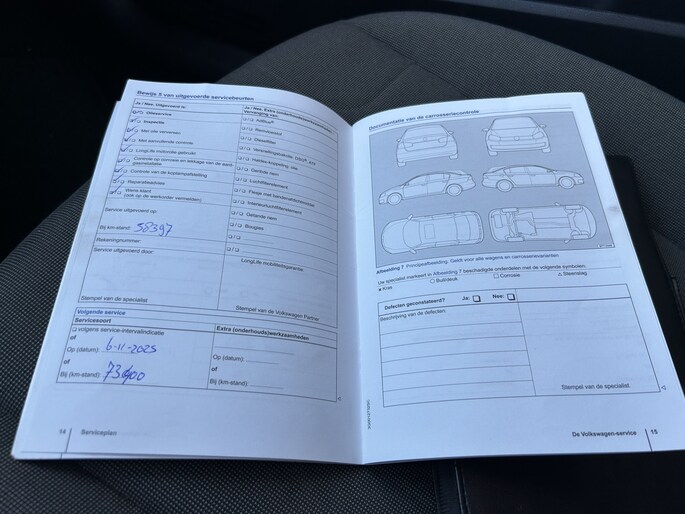 Bewijs 5 van uitgevoerde servicebeurten
Ja / Nee Uitgevoerd is:
Olieservice
Inspectie
Met olie verversen
Met aanvullende controle
LongLife motorolie gebruikt
Controle op corrosie en lekkage van de
Controle van de koplampafstelling
Reparatieadvies
Wens klant
(ook op de werkorder vermelden)
Service uitgevoerd op:
Bij km-stand: 58397
Rekeningnummer:
Service uitgevoerd door:
Stempel van de specialist
Ja / Nee Extra (onderhouds)werkzaamheden
Vervanging van:
AdBlue®
Remvloeistof
Dieselfilter
Distributieriem
Luchtfilterelement
Interieurluchtfilterelement
Getande riem
Bougies
LongLife mobiliteitsgarantie:
Stempel van de Volkswagen Partner
Volgende service
Servicesoort
volgens service-intervalindicatie
of
Op (datum): 6-11-2025
of
Bij (km-stand):
Extra (onderhouds)werkzaamheden
Op (datum):
of
Bij (km-stand):
14 Serviceplan
Documentatie van de carrosseriecontrole
Afbeelding 7 Principeafbeelding. Geldt voor alle wagens en carrosserievarianten.
Uw specialist markeert in Afbeelding 7 beschadigde onderdelen met de volgende symbolen:
x Kras
○ Buil/deuk
□ Corrosie
△ Steenslag
Defecten geconstateerd? Ja: Nee:
Beschrijving van de defecten:
Stempel van de specialist
De Volkswagen-service 15